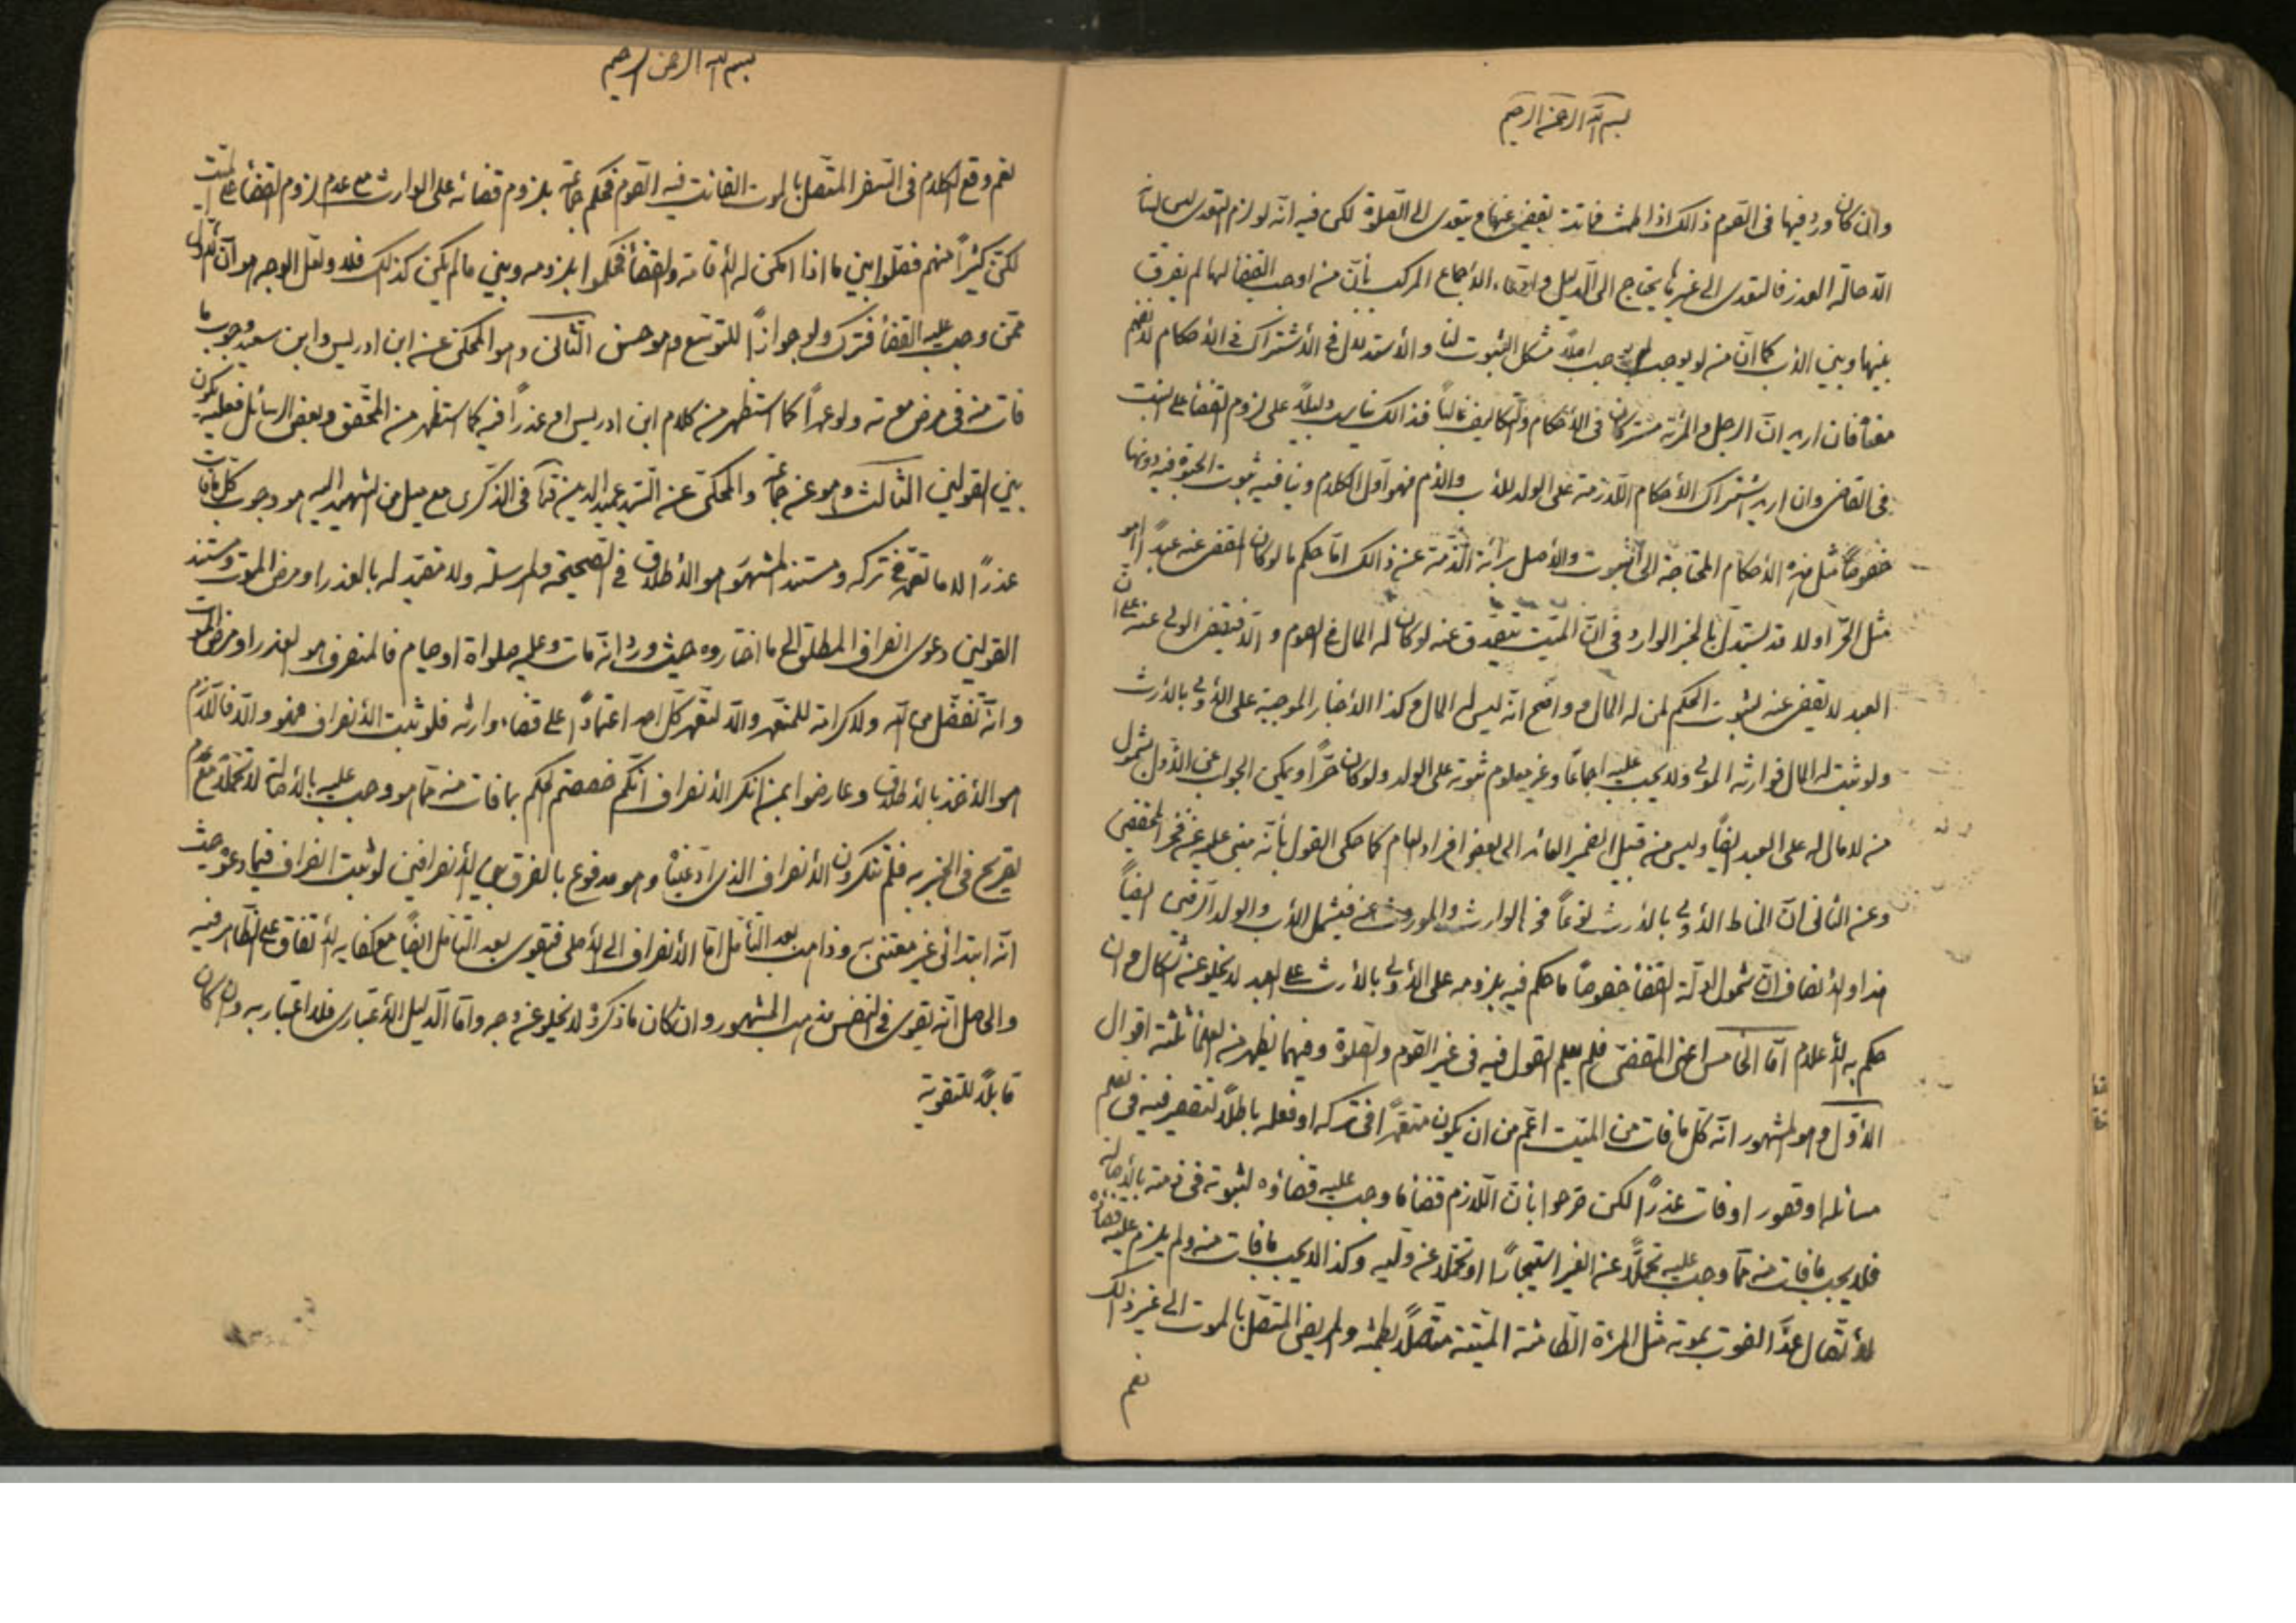 بسم الله الرحمن الرحيم
وان كان ورد فيها في الصوم ذالك اذا طمث فماتت يقضى عنها ويتعدى الى الصلوة لكن فيه انه لو لزم التعدى ليس لنا
الا حالة العذر فالتعدى الى غيرها يحتاج الى الدليل وادعاء الاجماع المركب بان من اوجب القضاء لها لم يفرق
بينها وبين الاب كما ان من لم يوجب لم يوجب اصلاً مشكل الثبوت لنا والاستدلال في الاشتراك في الاحكام لا نفهم
معناه فان اريد ان الرجل والمرئة مشتركان في الاحكام والتكاليف غالباً فذالك ليس دليلاً على لزوم القضاء على البنت
في القاضى وان اريد اشتراك الاحكام اللازمة على الولد للاب والام فهو اول الكلام وينافيه ثبوت الحبوة فيه دونها
خصوصاً مثل هذه الاحكام المحتاجة الى الثبوت والاصل برائة الذمة عن ذالك اما حكم ما لو كان المقضى عنه عبداً اهو
مثل الحر اولا قد يستدل بالخبر الوارد في ان الميت يتصدق عنه لو كان له المال في الصوم والا فيقضى الولى عنه على ان
العبد لا يقضى عنه لثبوت الحكم لمن له المال وواضح انه ليس له المال وكذا الاخبار الموجبة على الاولى بالارث
ولو ثبت له المال فوارثه المولى ولا يجب عليه اجماعاً وغير معلوم ثبوته على الولد ولو كان حراً ويمكن الجواب عن الاول بشمول
من لا مال له على العبد ايضاً وليس من قبيل الضمير العائد الى بعض افراد العام كما حكى القول بانه مبنى عليه عن فخر المحققين
وعن الثانى ان المناط الاولى بالارث نوعاً في الوارث والموروث عنه فيشمل الاب والولد الرقين ايضاً
هذا والانصاف ان شمول ادلة القضاء خصوصاً ما حكم فيه بلزومه على الاولى بالارث على العبد لا يخلو عن اشكال وان
حكم به الاعلام اما الخامس اعنى المقضى فلم يعلم القول فيه في غير الصوم والصلوة وفيهما يظهر من العلماء ثلثة اقوال
الاول وهو المشهور انه كل ما فات من الميت اعم من ان يكون مقصراً في تركه او فعله باطلاً لتقصير فيه في تعلم
مسائله او قصور او فات عذراً لكن صرحوا بان اللازم قضاء ما وجب عليه قضاؤه لثبوته في ذمته بالاصالة
فلا يجب ما فات منه مما وجب عليه تحملاً عن الغير استيجاراً او تحملا عن وليه وكذا لا يجب ما فات منه ولم يلزم عليه قضاؤه
لاتصال عذر الفوت بموته مثل المرئة الطامثة الميتة متصلاً بطمثه والمريض المتصل بالموت الى غير ذالك
نعم
بسم الله الرحمن الرحيم
نعم وقع الكلام في السفر المتصل بالموت الفائت فيه الصوم فحكم جماعة بلزوم قضائه على الوارث مع عدم لزوم القضاء على الميت
لكن كثيراً منهم فصلوا بين ما اذا امكن له الاقامة والقضاء فحكموا بلزومه وبين ما لم يكن كذلك فلا ولعل الوجه هو ان
ممن وجب عليه القضاء فترك ولو جوازاً للتوسع وهو حسن الثانى وهو المحكى عن ابن ادريس وابن سعيد وجوب ما
فات منه في مرض موته ولو عمداً كما استظهر من كلام ابن ادريس او عذراً فيه كما استظهر من المحقق وبعض الرسائل فعليه يكون
بين القولين الثالث وهو عن جماعة والمحكى عن السيد عميد الدين كما في الذكرى مع ميل من الشهيد اليه هو وجوب كل ما فات
عذراً لا ما تعمد في تركه ومستند المشهور هو الاطلاق في الصحيحة والمرسلة ولا مقيد له بالعذر او مرض الموت ومستند
القولين دعوى انصراف المطلق الى ما اختاروه حيث ورد انه مات وعليه صلواة او صيام فالمنصرف هو العذر او مرض الموت
وانه تفضل من الله ولا كرامة للمتعمد والا لتعمد كل احد اعتماداً على قضاء وارثه فلو ثبت الانصراف فهو والا فاللازم
هو الاخذ بالاطلاق وعارضوا بمن انكر الانصراف انكم خصصتم الحكم بما فات منه مما هو وجب عليه بالاصالة لا تحملاً مع عدم
تصريح في الخبر به فلم تنكرون الانصراف الذى ادعيناه وهو مدفوع بالفرق بين الانصرافين لو ثبت انصراف فيما ادعوه حيث
انه ابتدائى غير معتنى به وذاهب بعد التأمل اما الانصراف الى الاصلى فيقوى بعد التأمل ايضاً مع كفاية الاتفاق على الظاهر فيه
والحاصل انه يقوى في النفس مذهب المشهور وان كان ما ذكروه لا يخلو عن وجه واما الدليل الاعتبارى فلا اعتبار به وان كان
قابلاً للتقوية